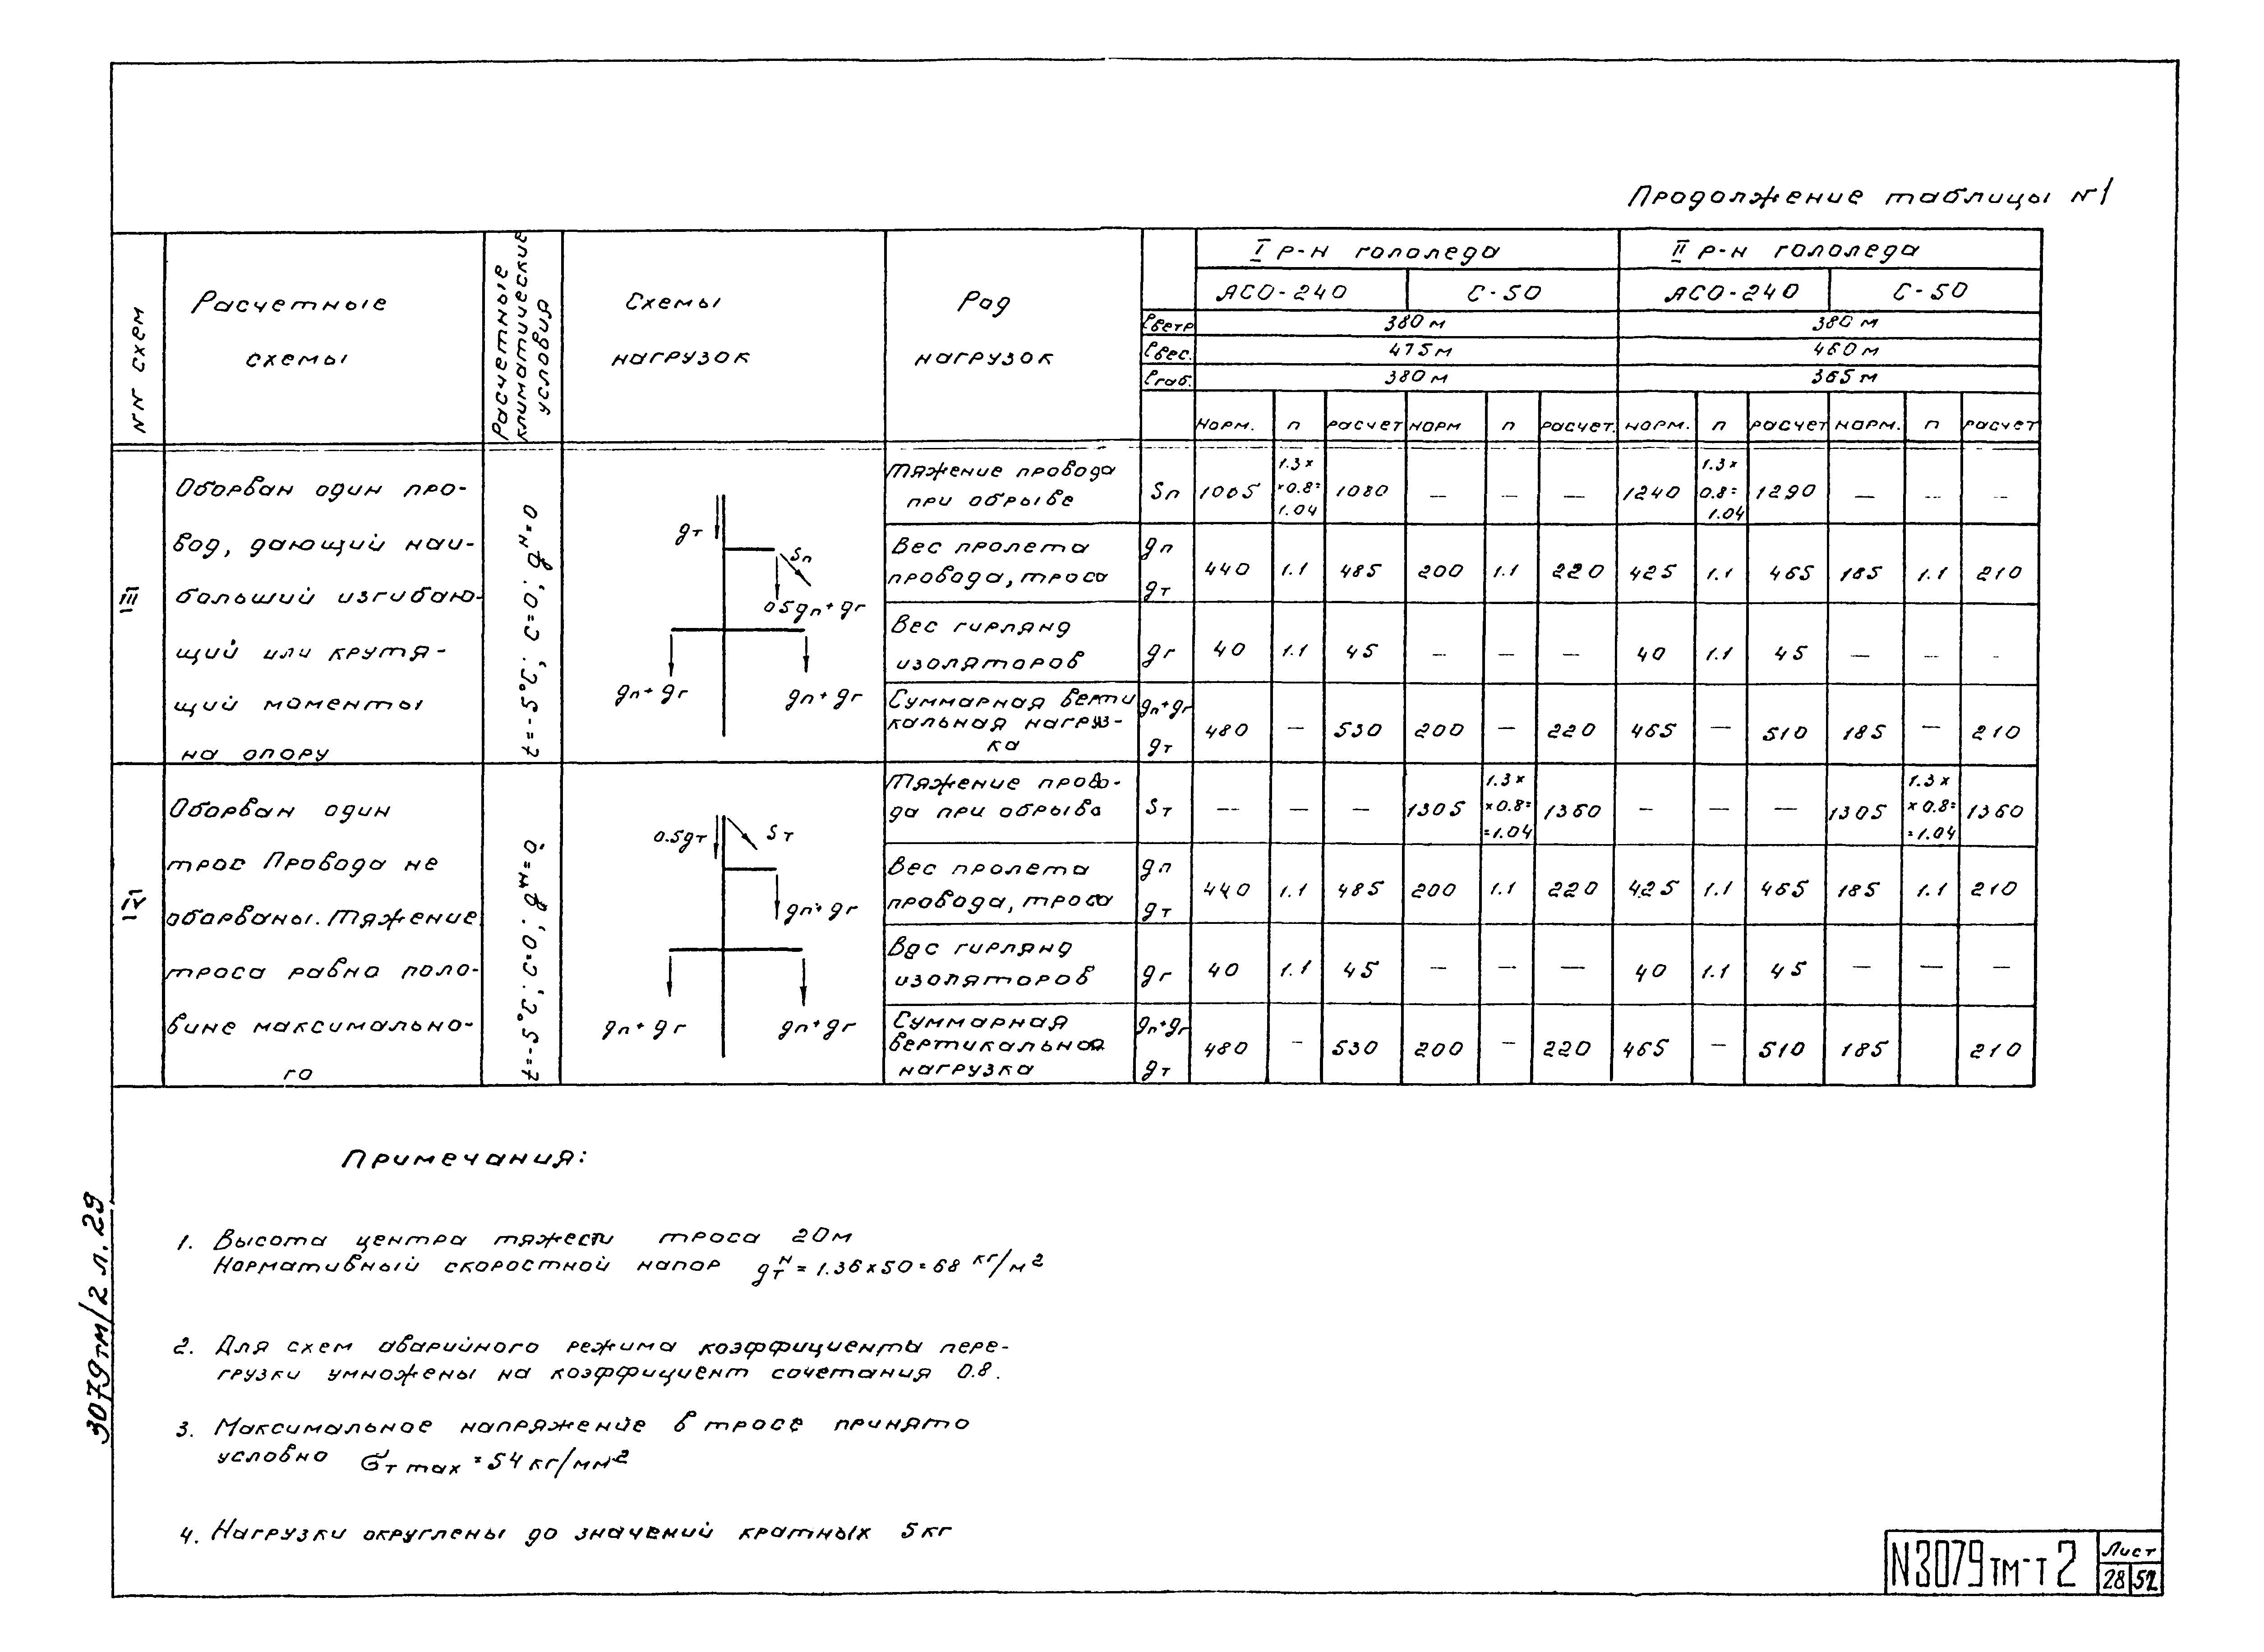 Продолжение таблицы №1
NN схем
Расчетные
схемы
Расчетные
климатические
условия
Схемы
нагрузок
Род
нагрузок
I р-н гололеда
II р-н гололеда
АСО-240
С-50
АСО-240
С-50
ℓветр
380 м
380 м
ℓвес.
475 м
460 м
ℓгаб.
380 м
365 м
Норм. п расчет норм п расчет. норм. п расчет норм. п расчет
III
Оборван один про-
вод, дающий наи-
больший изгибаю-
щий или крутя-
щий моменты
на опору
t=-5°С; С=0; qн=0
gт
Sп
0.5gп+gг
gп+gг
gп+gг
Тяжение провода
при обрыве
Sп 1065 1.3× ×0.8= 1.04 1080 — — — 1240 1.3× 0.8= 1.04 1290 — — —
Вес пролета
провода, троса
gп
gт
440 1.1 485 200 1.1 220 425 1.1 465 185 1.1 210
Вес гирлянд
изоляторов
gг 40 1.1 45 — — — 40 1.1 45 — — -
Суммарная верти
кальная нагруз-
ка
gп+gг
gт
480 — 530 200 — 220 465 — 510 185 — 210
IV
Оборван один
трос Провода не
оборваны. Тяжение
троса равно поло-
вине максимально-
го
t=-5°С; С=0; qн=0
0.5gт
Sт
gп+gг
gп+gг
gп+gг
Тяжение прово-
да при обрыве
Sт — — — 1305 1.3× ×0.8= =1.04 1360 — — — 1305 1.3× ×0.8= =1.04 1360
Вес пролета
провода, троса
gп
gт
440 1.1 485 200 1.1 220 425 1.1 465 185 1.1 210
Вес гирлянд
изоляторов
gг 40 1.1 45 — — — 40 1.1 45 — — —
Суммарная
вертикальная
нагрузка
gп+gг
gт
480 - 530 200 — 220 465 — 510 185 210
Примечания:
1. Высота центра тяжести троса 20м
Нормативный скоростной напор gтᴴ=1.36×50=68 кг/м²
2. Для схем аварийного режима коэффициенты пере-
грузки умножены на коэффициент сочетания 0.8.
3. Максимальное напряжение в тросе принято
условно σт max = 54 кг/мм²
4. Нагрузки округлены до значений кратных 5 кг
3079тм/2 л. 29
N3079тм-т2
Лист
28 52